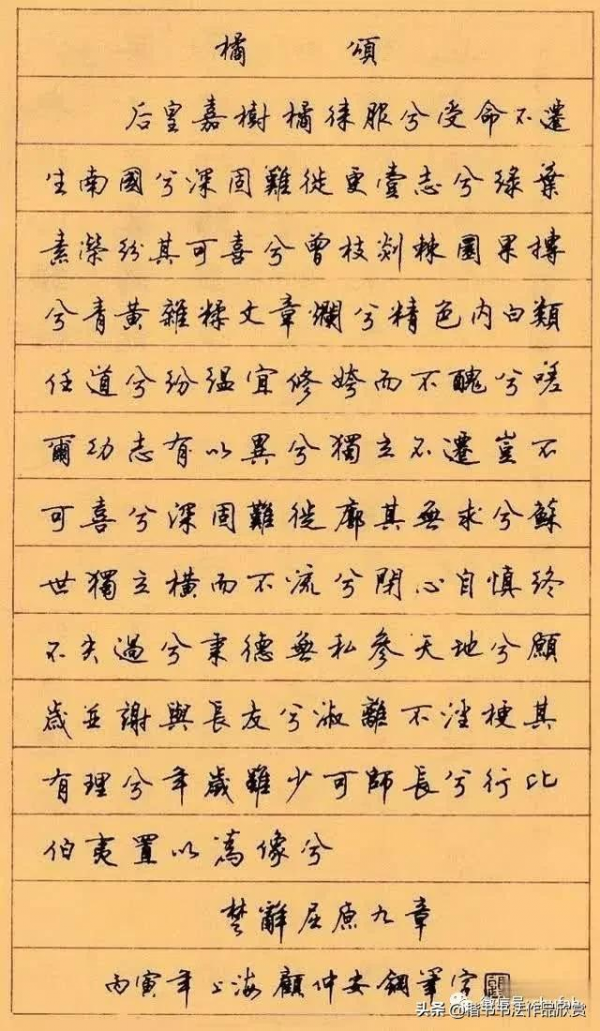 橘頌
后皇嘉樹橘徠服兮受命不遷
生南國兮深固難徙更壹志兮綠葉
素榮紛其可喜兮曾枝剡棘圜果摶
兮青黃雜糅文章爛兮精色內白類
任道兮紛緼宜修姱而不醜兮嗟
爾幼志有以異兮獨立不遷豈不
可喜兮深固難徙廓其無求兮蘇
世獨立橫而不流兮閉心自慎終
不失過兮秉德無私參天地兮願
歲並謝與長友兮淑離不淫梗其
有理兮年歲雖少可師長兮行比
伯夷置以為像兮
楚辭屈原九章
丙寅年上海顧仲安鋼筆字
頭條@楷书书法作品欣赏